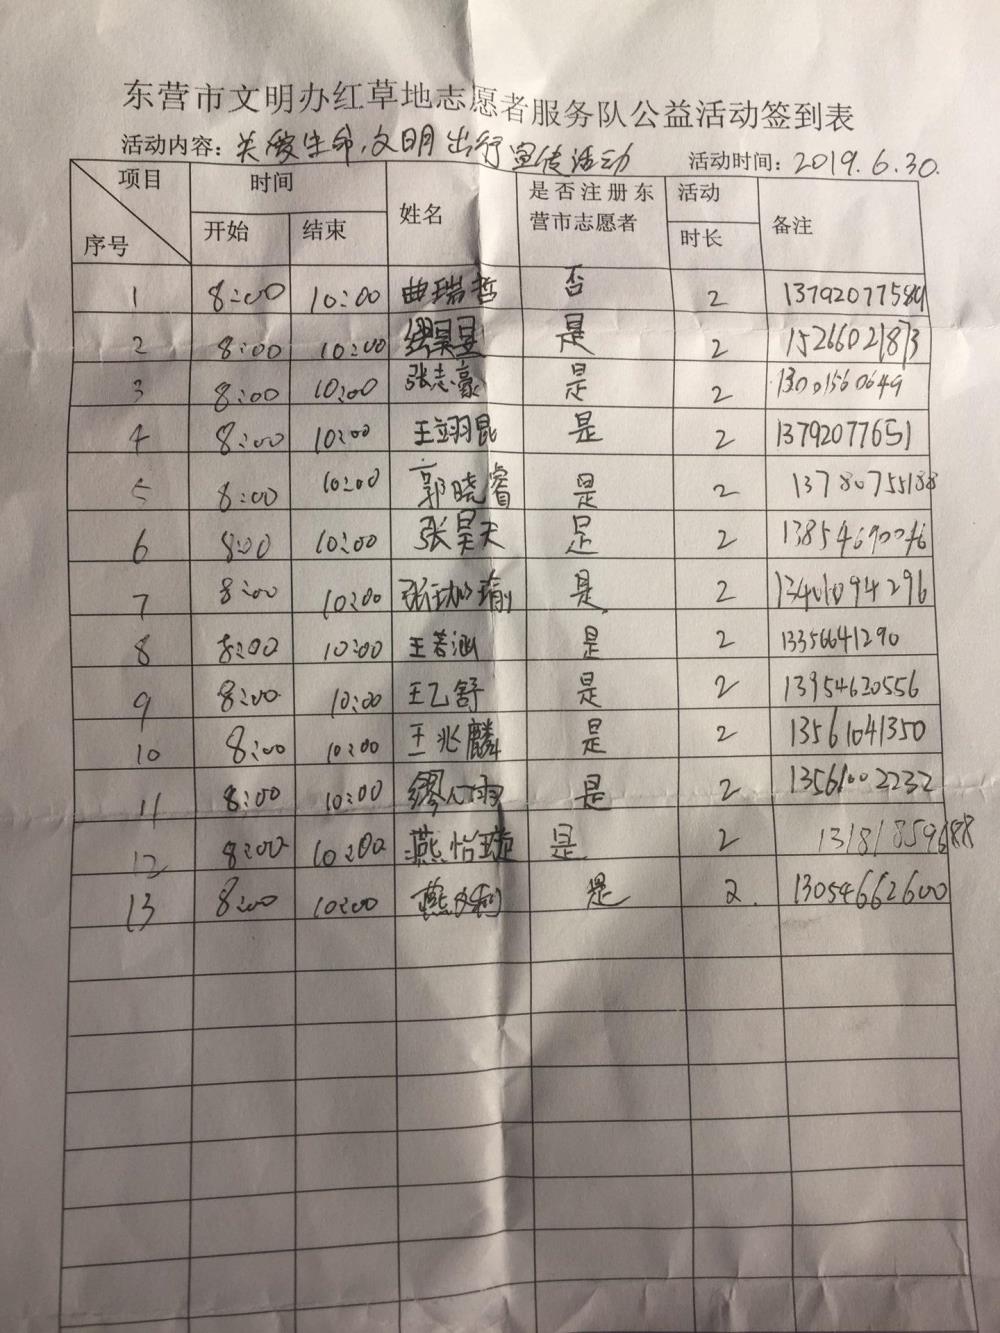 东营市文明办红草地志愿者服务队公益活动签到表
活动内容：关爱生命，文明出行宣传活动 活动时间：2019.6.30.
项目 时间 姓名 是否注册东营市志愿者 活动时长 备注
序号 开始 结束
1 8:00 10:00 曲瑞哲 否 2 13792077584
2 8:00 10:00 缪昊昱 是 2 15266021873
3 8:00 10:00 张志豪 是 2 13001560649
4 8:00 10:00 王翊昆 是 2 13792077651
5 8:00 10:00 郭晓睿 是 2 13780755188
6 8:00 10:00 张昊天 是 2 13854690046
7 8:00 10:00 张珈瑜 是 2 13401094296
8 8:00 10:00 王若涵 是 2 13356641290
9 8:00 10:00 王乙舒 是 2 13954620556
10 8:00 10:00 王兆麟 是 2 13561041350
11 8:00 10:00 缪心雨 是 2 13561002232
12 8:00 10:00 燕怡璇 是 2 13181859688
13 8:00 10:00 是 2. 13054662600